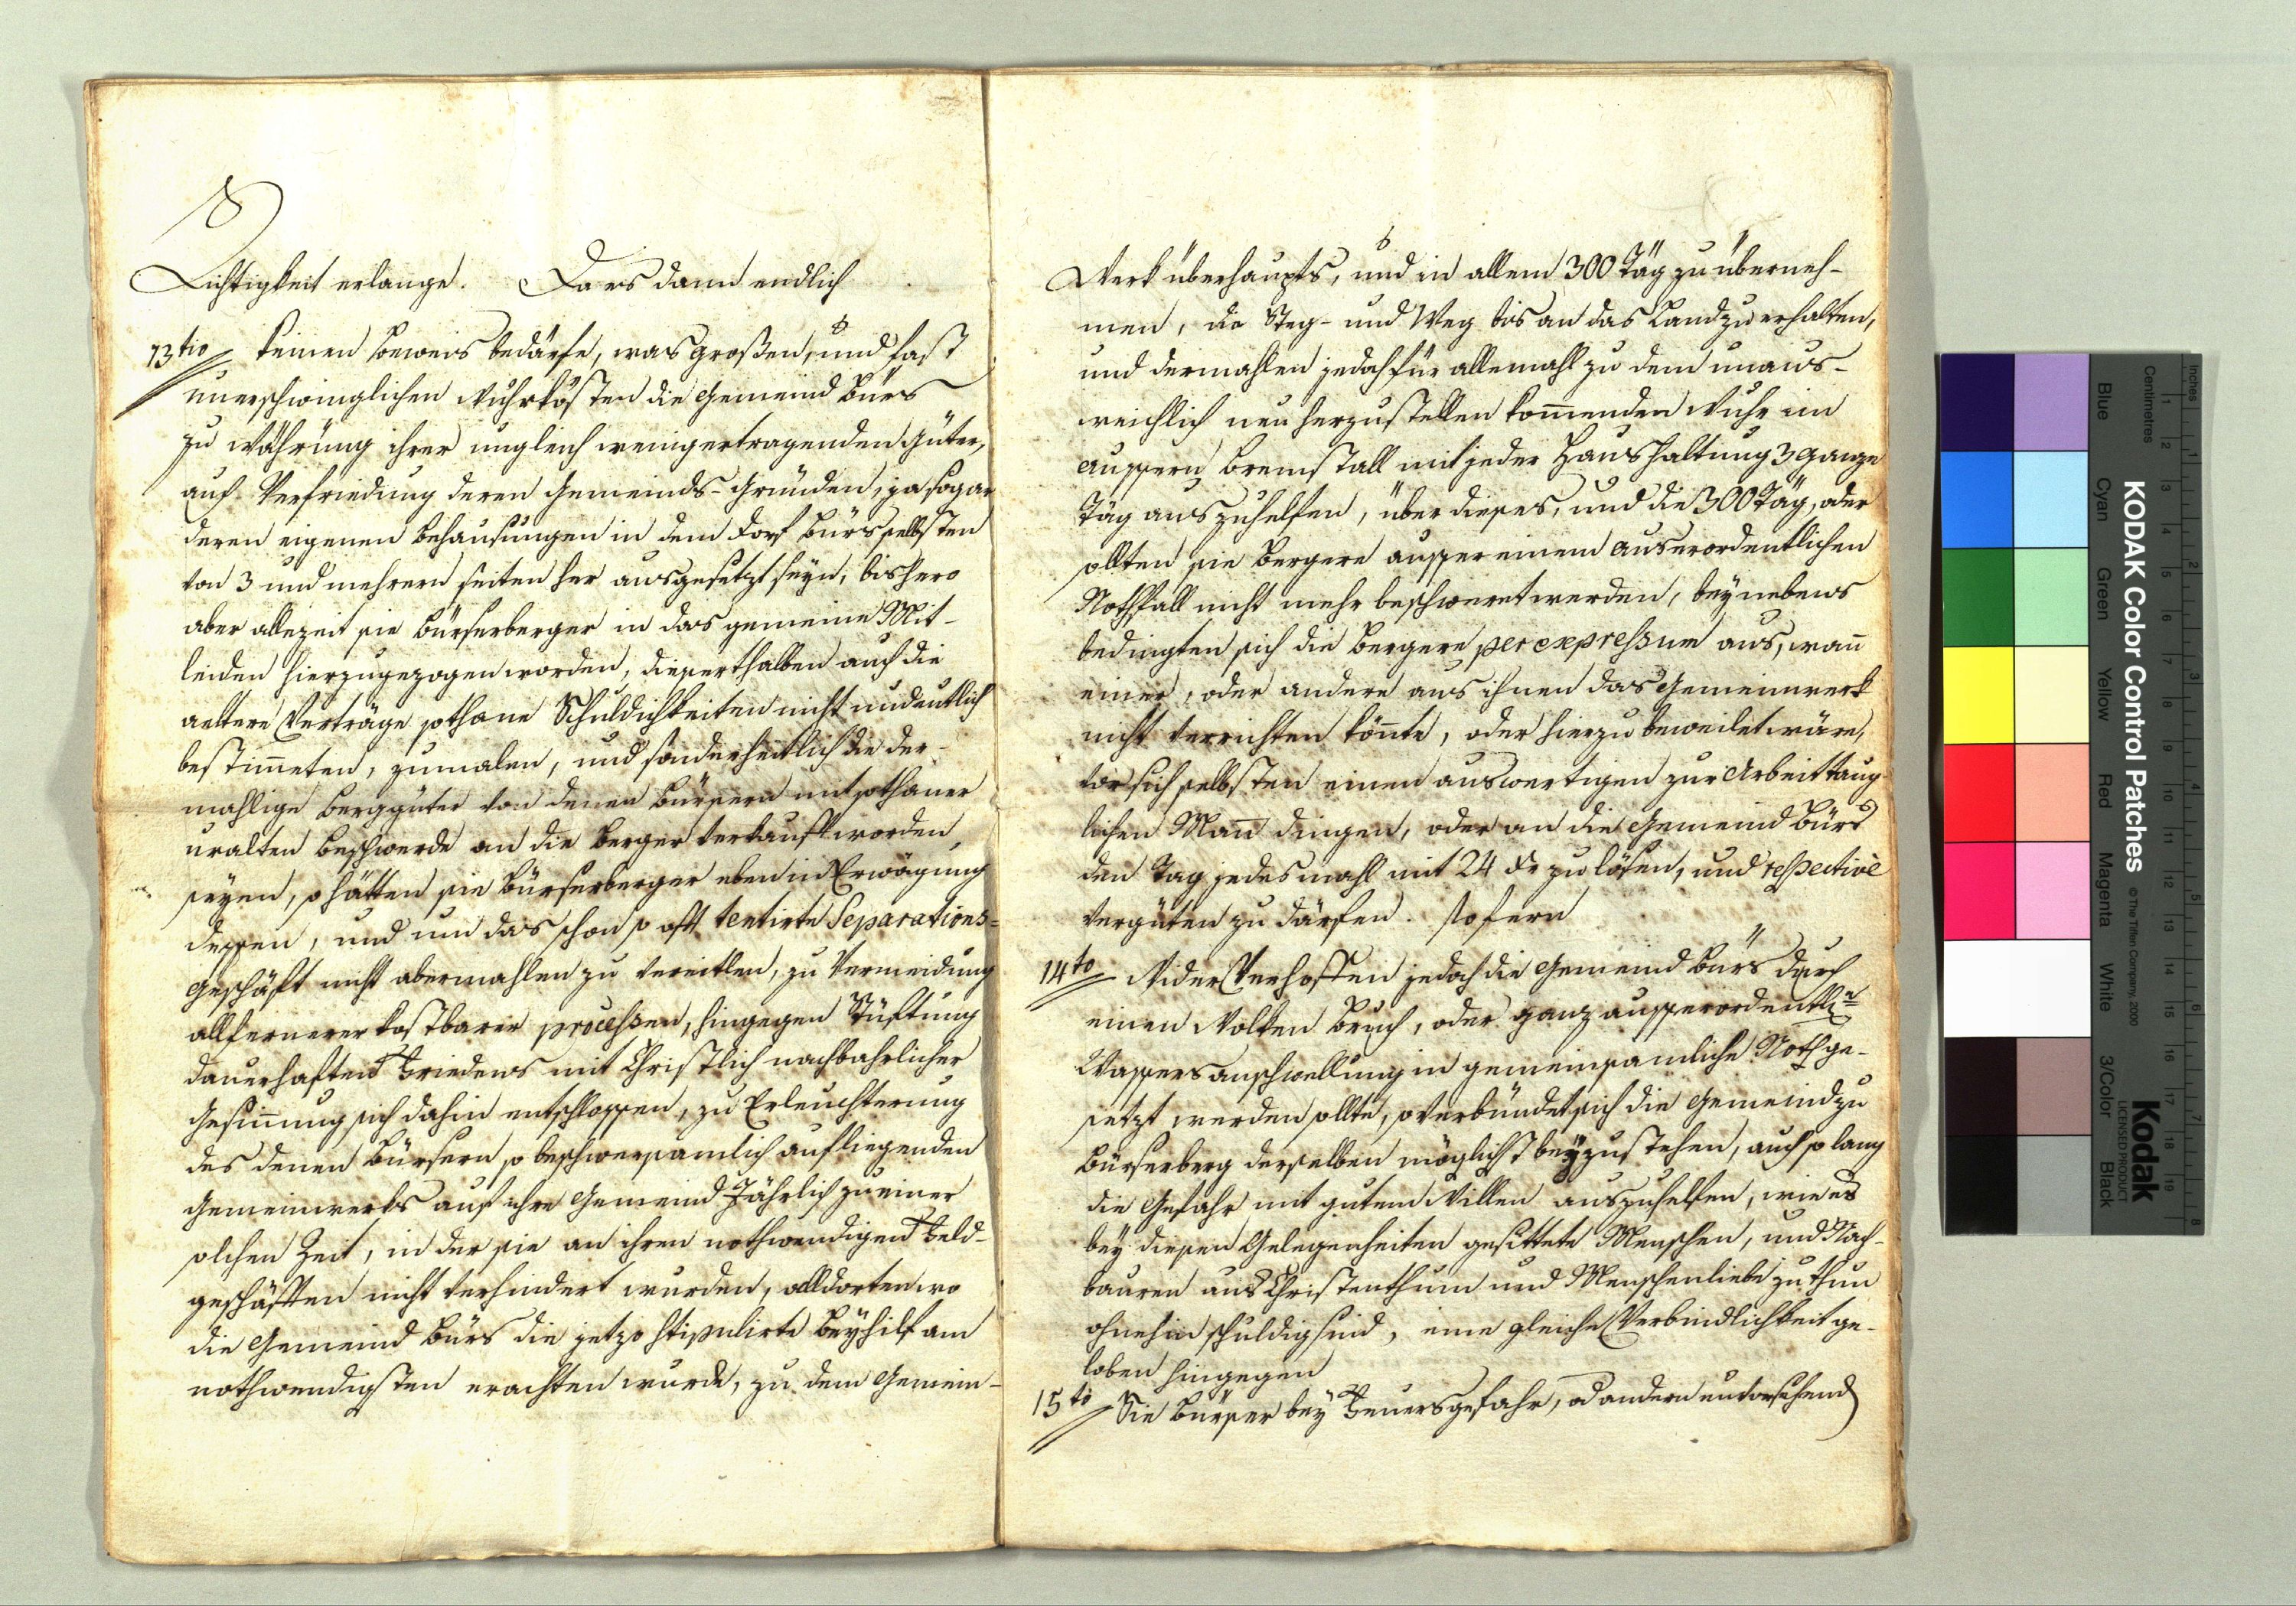 Richtigkeit erlange. Da es dann endlich
13tio keinen Beweis bedärfe, was großen, und fast
unerschwinglichen Wuhrkösten die Gemeind Bürs
zu Wührung ihrer ungleich weniger tragenden Güter,
auch Verfriedung deren Gemeinds-Gründen, ja sogar
deren eigenen Behausungen in dem Dorf Bürs selbsten
von 3 und mehrern seiten her ausgesetzt seyn, bishero
aber allezeit sie Bürserberger in das gemeine Mit-
leiden hierzugezogen worden, diesserthalben auch die
aeltere Verträge sothane Schuldichkeiten nicht undeutlich
bestimmeten, zumalen, und sonderheitlich die der-
mahlige Berggüter von denen Bürsern mit sothaner
uralten Beschwerde an die Berger verkauft worden
seyen, so hätten sie Bürserberger eben in Erwägung
dessen, und um das schon so oft tentirte Separations-
Geschäft nicht abermahlen zu vereitlen, zu Vermeidung
allfernerer kostbarer processen, hingegen Stüftung
dauerhaften Friedens mit Christlich nachbahrlicher
Gesinnung sich dahin entschlossen, zu Erleuchterung
des denen Bürsern so beschwersamlich aufliegenden
Gemeinwerks auf ihre Gemeind Jährlich zu einer
solchen Zeit, in der sie an ihren nothwendigen Feld-
geschäften nicht verhindert wurden, alldorten wo
die Gemeind Bürs die jetzo stipulirte Beyhilf am
nothwendigsten erachten wurde, zu dem Gemein-
Werk überhaupts, und in allem 300 Täg zu überneh-
men, die Steg- und Weg bis an das Land zu erhalten,
und dermahlen jedoch für allemahl zu dem unaus-
weichlich neu herzustellen kommenden Wuhr im
aussern Bremstall mit jeder Haushaltung 3 ganze
Täg auszuhelfen, über dieses, und die 300 Täg, aber
sollten sie Bergere ausser einem ausserordentlichen
Nothfall nicht mehr beschweret werden, beynebens
bedingten sich die Bergere per expressum aus, wann
einer, oder andere aus ihnen das Gemeinwerk
nicht verrichten könnte, oder hierzu beweilet wäre,
vor sich selbsten einen auswertigen zur Arbeit taug-
lichen Mann dingen, oder an die Gemeind Bürs
den Tag jedesmahl mit 24 xr zu lösen, und respective
vergüten zu därfen. Sofern
14to Wider Verhoffen jedoch die Gemeind Bürs durch
einen Wolken Bruch, oder ganz ausserordentl.
Wassersanschwellung in gemeinsamliche Noth ge-
setzt werden sollte, so verbündet sich die Gemeind zu
Bürserberg derselben möglichst beyzustehen, auch so lang
die Gefahr mit gutem Willen auszuhelfen, wie es
bey diesen Gelegenheiten gesittete Menschen, und Nach-
bauren aus Christenthum und Menschenliebe zu thun
ohnehin schuldig sind, eine gleiche Verbindlichkeit ge-
loben hingegen
15to Sie Bürser bey Feuersgefahr, od andern unvorsehend
KODAK Color Control Patches
© The Tiffen Company, 2000
Kodak
LICENSED PRODUCT
Blue Cyan Green Yellow Red Magenta White 3/Color Black
Inches
Centimetres
1 2 3 4 5 6 7 8
1 2 3 4 5 6 7 8 9 10 11 12 13 14 15 16 17 18 19